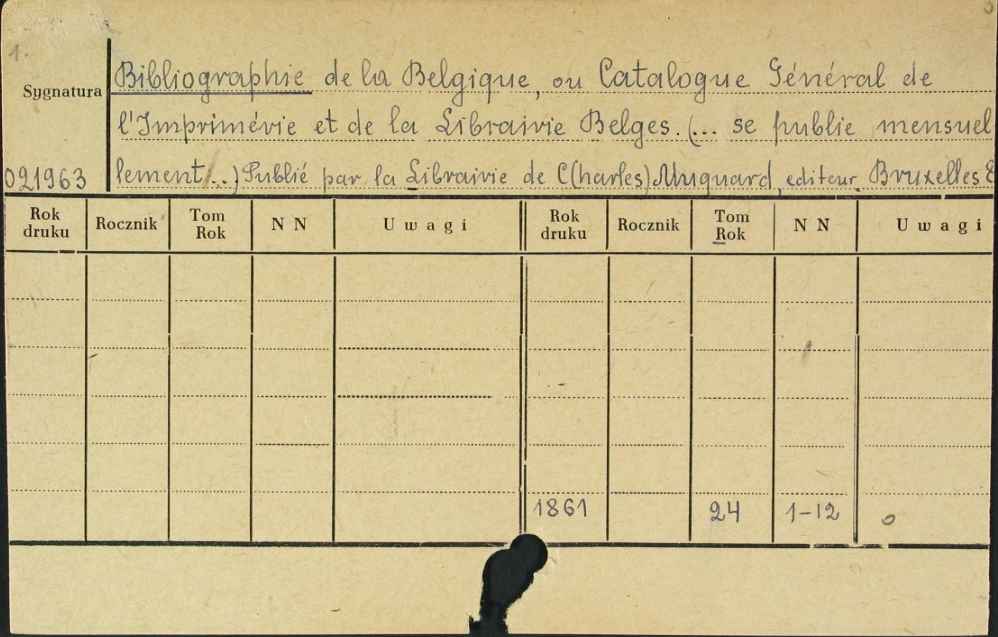 1.
Sygnatura
021963
Bibliographie de la Belgique, ou Catalogue Général de
l'Imprimérie et de la Librairie Belges. (... se publie mensuel
lement...) Publié par la Librairie de C(harles) Muquard, editeur, Bruxelles
Rok druku Rocznik Tom Rok N N Uwagi Rok druku Rocznik Tom Rok N N Uwagi
1861 24 1-12 o